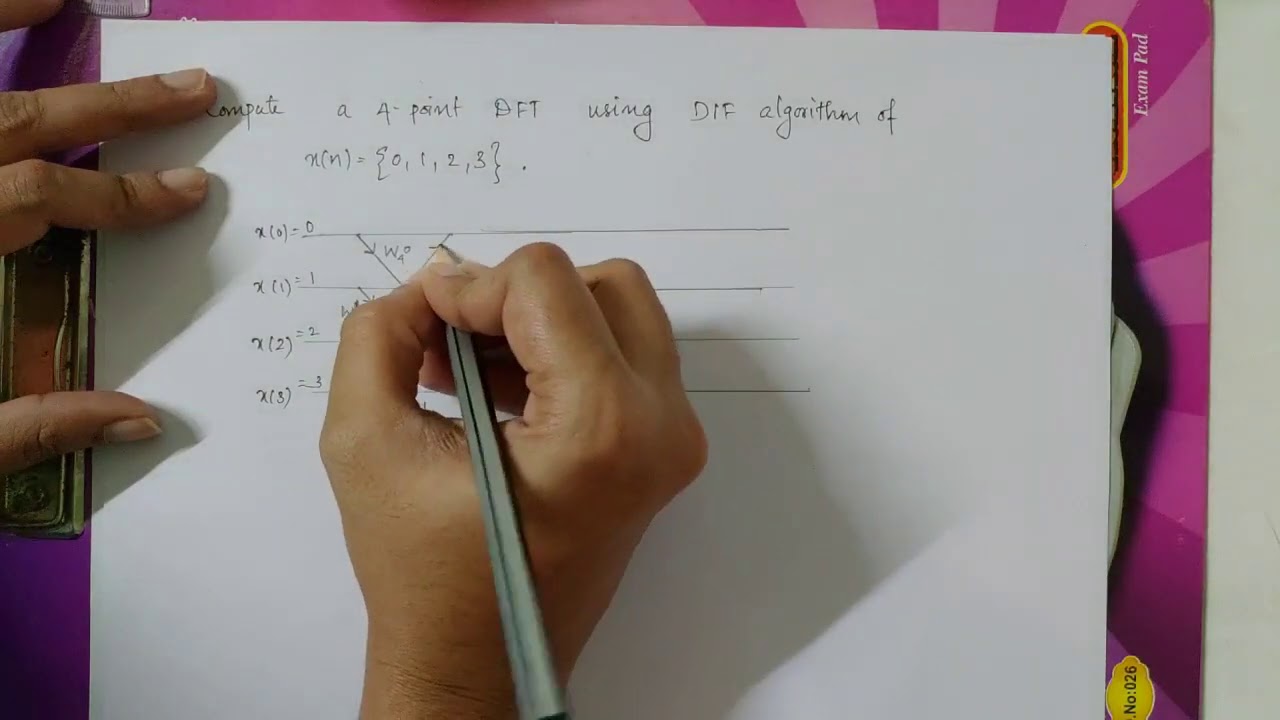 compute a 4-point DFT using DIF algorithm of
x(n) = {0, 1, 2, 3} .
x(0) = 0
W₄⁰
x(1) = 1
x(2) = 2
x(3) = 3
Exam Pad
.No:026